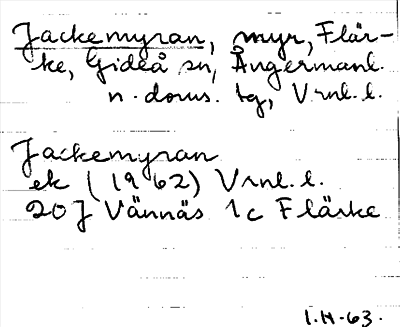 Jackemyran, myr, Flär-
ke, Gideå sn, Ångermanl.
n. doms. tg, Vrnl. l.
Jackemyran
ek (1962) Vrnl. l.
20J Vännäs 1c Flärke
I.H-63.